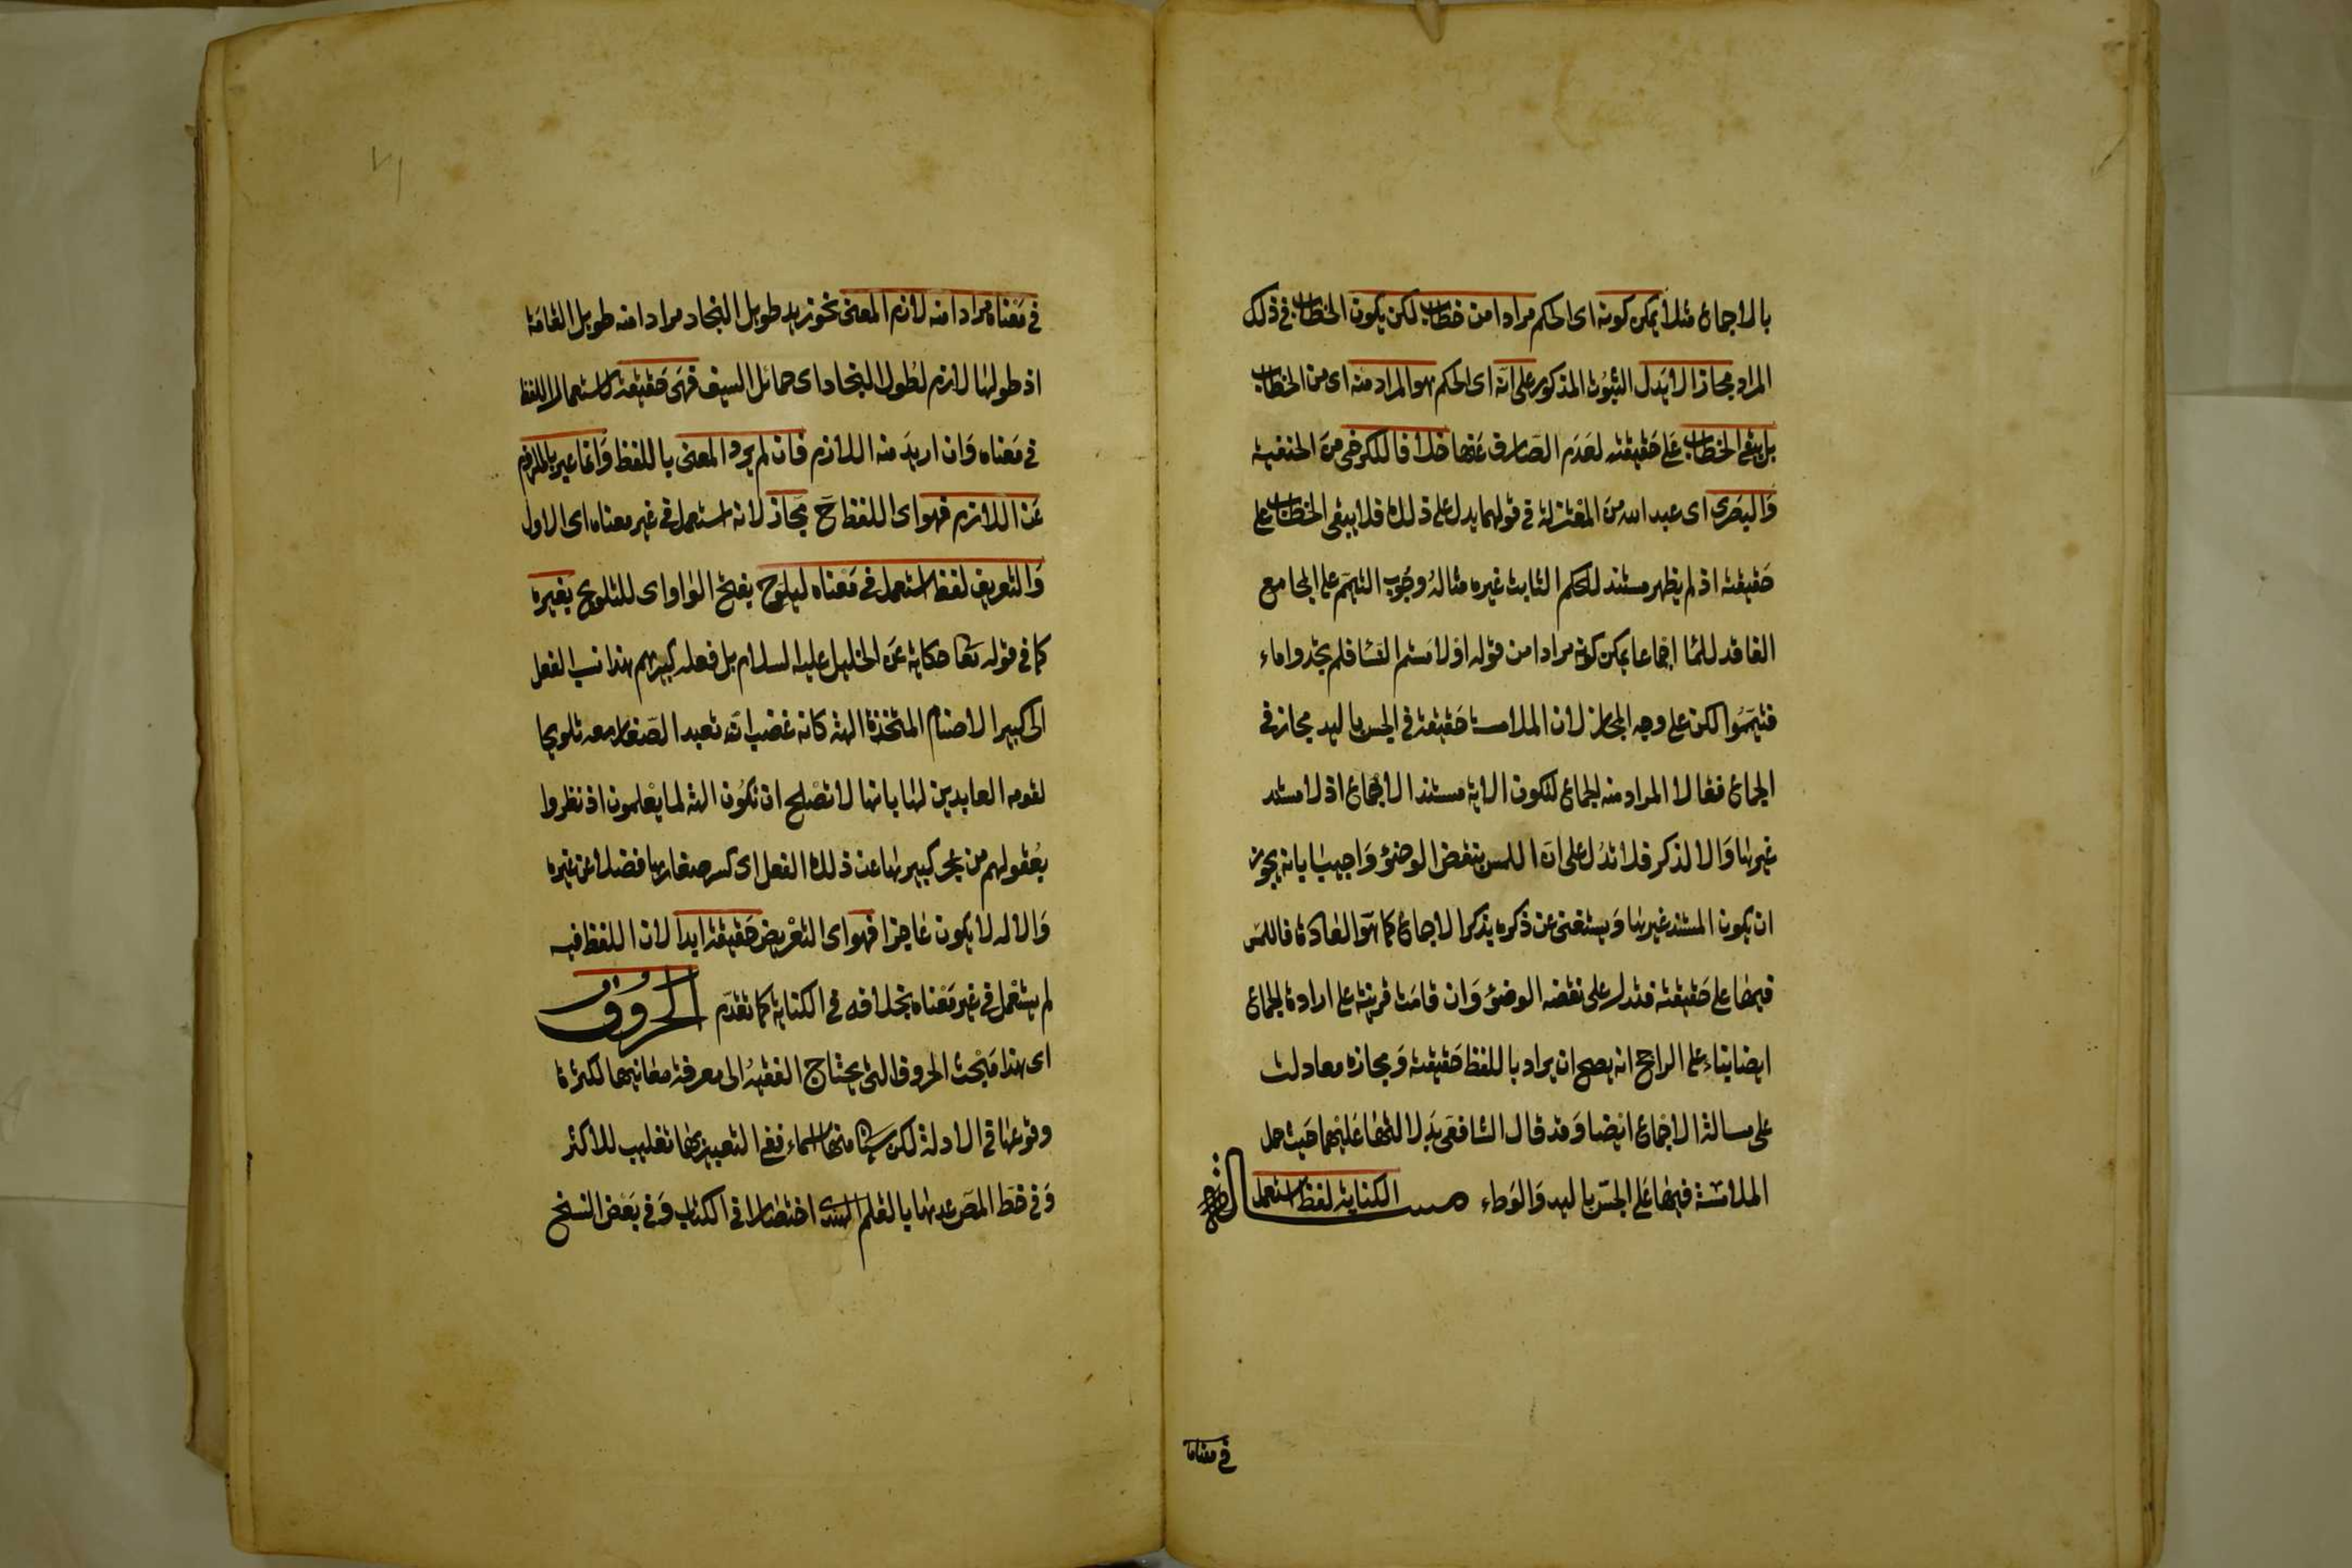 بالاجماع مثلا يمكن كونه اى الحكم مرادا من خطاب لكن يكون الخطاب فى ذلك
المراد مجازا لا يدل الثبوت المذكور على انه اى الحكم هو المراد منه اى من الخطاب
بل يبقى الخطاب على حقيقته لعدم الصارف عنها خلافا للكرخى من الحنفية
والبصرى اى عبد الله من المعتزلة فى قولهما يدل على ذلك فلا يبقى الخطاب على
حقيقته اذ لم يظهر مستند للحكم الثابت غيره مثاله وجوب التيمم على المجامع
الفاقد للما اجماعا يمكن كونه مرادا من قوله او لامستم النسا فلم تجدوا ماء
فتيمموا لكن على وجه المجاز لان الملامسة حقيقة فى الجس باليد مجاز فى
الجماع فقالا المراد منه الجماع لتكون الاية مستند الاجماع اذ لا مستند
غيرها والا لذكر فلا تدل على ان اللمس ينقض الوضؤ واجيب بانه يجوز
ان يكون المستند غيرها ويستغنى عن ذكره بذكر الاجماع كما هو العادة فاللمس
فيها على حقيقته فتدل على نقضه الوضؤ وان قامت قرينة على ارادة الجماع
ايضا بناء على الراجح انه يصح ان يراد باللفظ حقيقته ومجازه معا دلت
على مسالة الاجماع ايضا وقد قال الشافعى بدلالتها عليهما حيث حمل
الملامسة فيها على الجس باليد والوطء مسالة الكناية لفظ استعمل
فى معناه
٧١
فى معناه مرادا منه لازم المعنى نحو زيد طويل النجاد مرادا منه طويل القامة
اذ طولها لازم لطول النجاد اى حمائل السيف فهى حقيقة لاستعمال اللفظ
فى معناه وان اريد منه اللازم فان لم يرد المعنى باللفظ وانما عبر بالملزوم
عن اللازم فهو اى اللفظ ح مجاز لانه استعمل فى غير معناه اى الاول
والتعريض لفظ استعمل فى معناه ليلوح بفتح الواو اى للتلويح بغيره
كما فى قوله تعا حكاية عن الخليل عليه السلام بل فعله كبيرهم هذا نسب الفعل
الى كبير الاصنام المتخذة الهة كانه غضب ان تعبد الصغار معه تلويحا
لقومه العابدين لها بانها لا تصلح ان تكون الهة لما يعلمون اذ نظروا
بعقولهم من عجز كبيرها عن ذلك الفعل اى كسر صغارها فضلا عن غيره
والاله لا يكون عاجزا فهو اى التعريض حقيقة ابدا لان اللفظ فيه
لم يستعمل فى غير معناه بخلافه فى الكناية كما تقدم الحروف
اى هذا مبحث الحروف التى يحتاج الفقيه الى معرفة معانيها لكثرة
وقوعها فى الادلة لكن سياتى منها اسماء ففى التعبير بها تغليب للاكثر
وفى خط المص عدها بالقلم الهندى اختصارا فى الكتاب وفى بعض النسخ